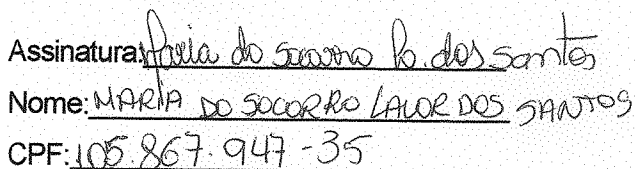 Assinatura: Maria do Socorro L. dos Santos
Nome: MARIA DO SOCORRO LALOR DOS SANTOS
CPF: 105.867.947-35